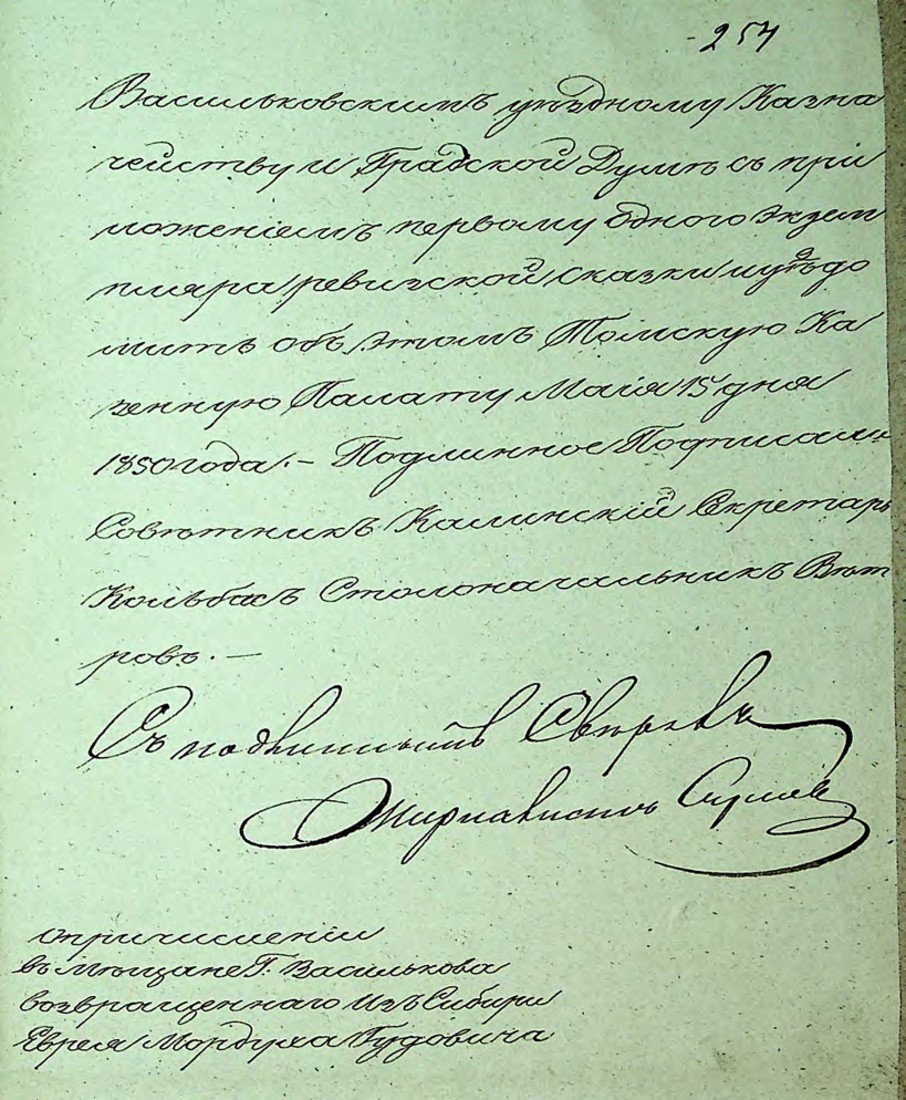 257
Васильковскимъ уѣздному Казна
чейству и Градской Думѣ съ при
ложеніемъ первому одного экзем
пляра ревизской сказки и увѣдо
мить объ этомъ Томскую Ка
зенную Палату Маія 15 дня
1850 года. – Подлинное Подписали
Совѣтникъ Калинскій Секретарь
Кольбасъ Столоначальникъ Вѣт
ровъ. –
Съ подлиннымъ Свѣрявъ
Журналистъ
о причисленіи
въ Мѣщане Г. Василькова
возвращеннаго Изъ Сибири
Еврея Мордуха Гудовича